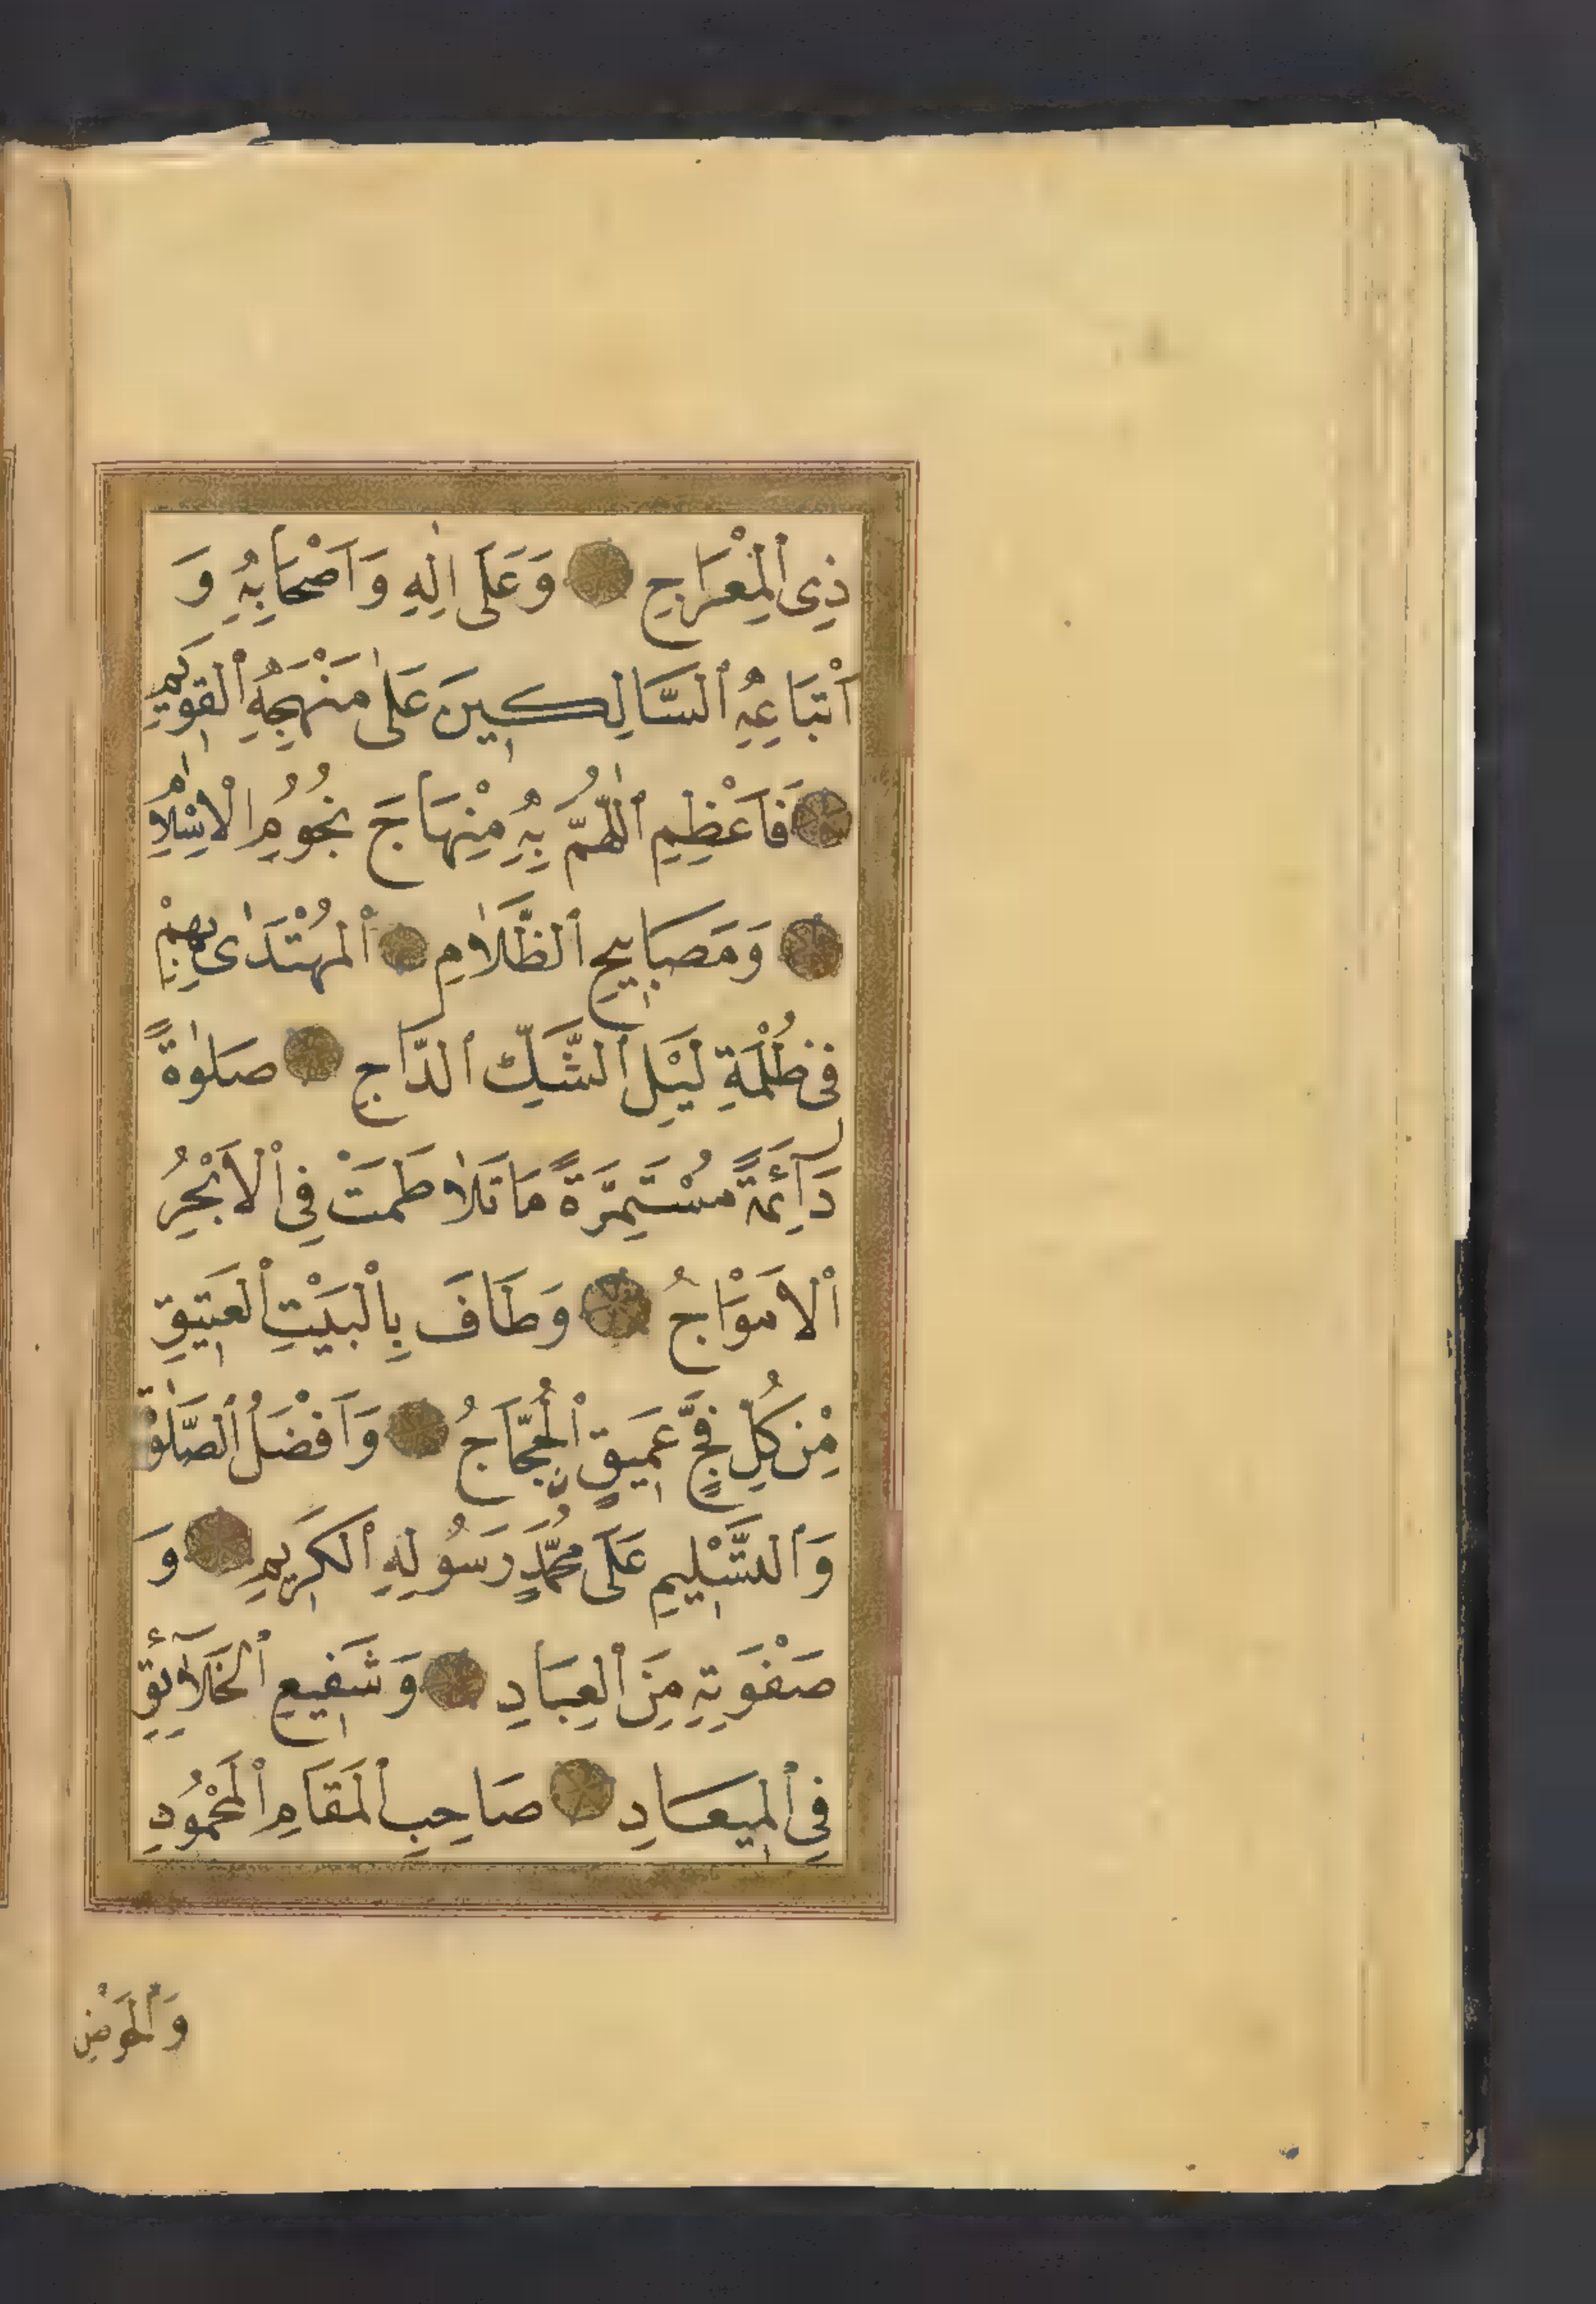 ذِى ٱلْمِعْرَاجِ وَعَلَى اٰلِهِ وَاَصْحَابِهِ وَ
اَتْبَاعِهِ ٱلسَّالِكِينَ عَلٰى مَنْهَجِهِ ٱلْقَوِيمِ
فَاَعْظِمِ ٱللّٰهُمَّ بِهِ مِنْهَاجَ نُجُومِ الْاِسْلَامِ
وَمَصَابِيحِ ٱلظَّلَامِ ٱلْمُهْتَدٰى بِهِمْ
فِى ظُلْمَةِ لَيْلِ ٱلشَّكِّ ٱلدَّاجِ صَلٰوةً
دَآئِمَةً مُسْتَمِرَّةً مَا تَلَاطَمَتْ فِى ٱلْاَبْحُرِ
ٱلْاَمْوَاجُ وَطَافَ بِٱلْبَيْتِ ٱلْعَتِيقِ
مِنْ كُلِّ فَجٍّ عَمِيقٍ ٱلْحُجَّاجُ وَاَفْضَلُ ٱلصَّلٰوةِ
وَٱلتَّسْلِيمِ عَلَى مُحَمَّدٍ رَسُولِهِ ٱلْكَرِيمِ وَ
صَفْوَتِهِ مِنَ ٱلْعِبَادِ وَشَفِيعِ ٱلْخَلَآئِقِ
فِى ٱلْمِيعَادِ صَاحِبِ ٱلْمَقَامِ ٱلْمَحْمُودِ
وَٱلْحَوْضِ